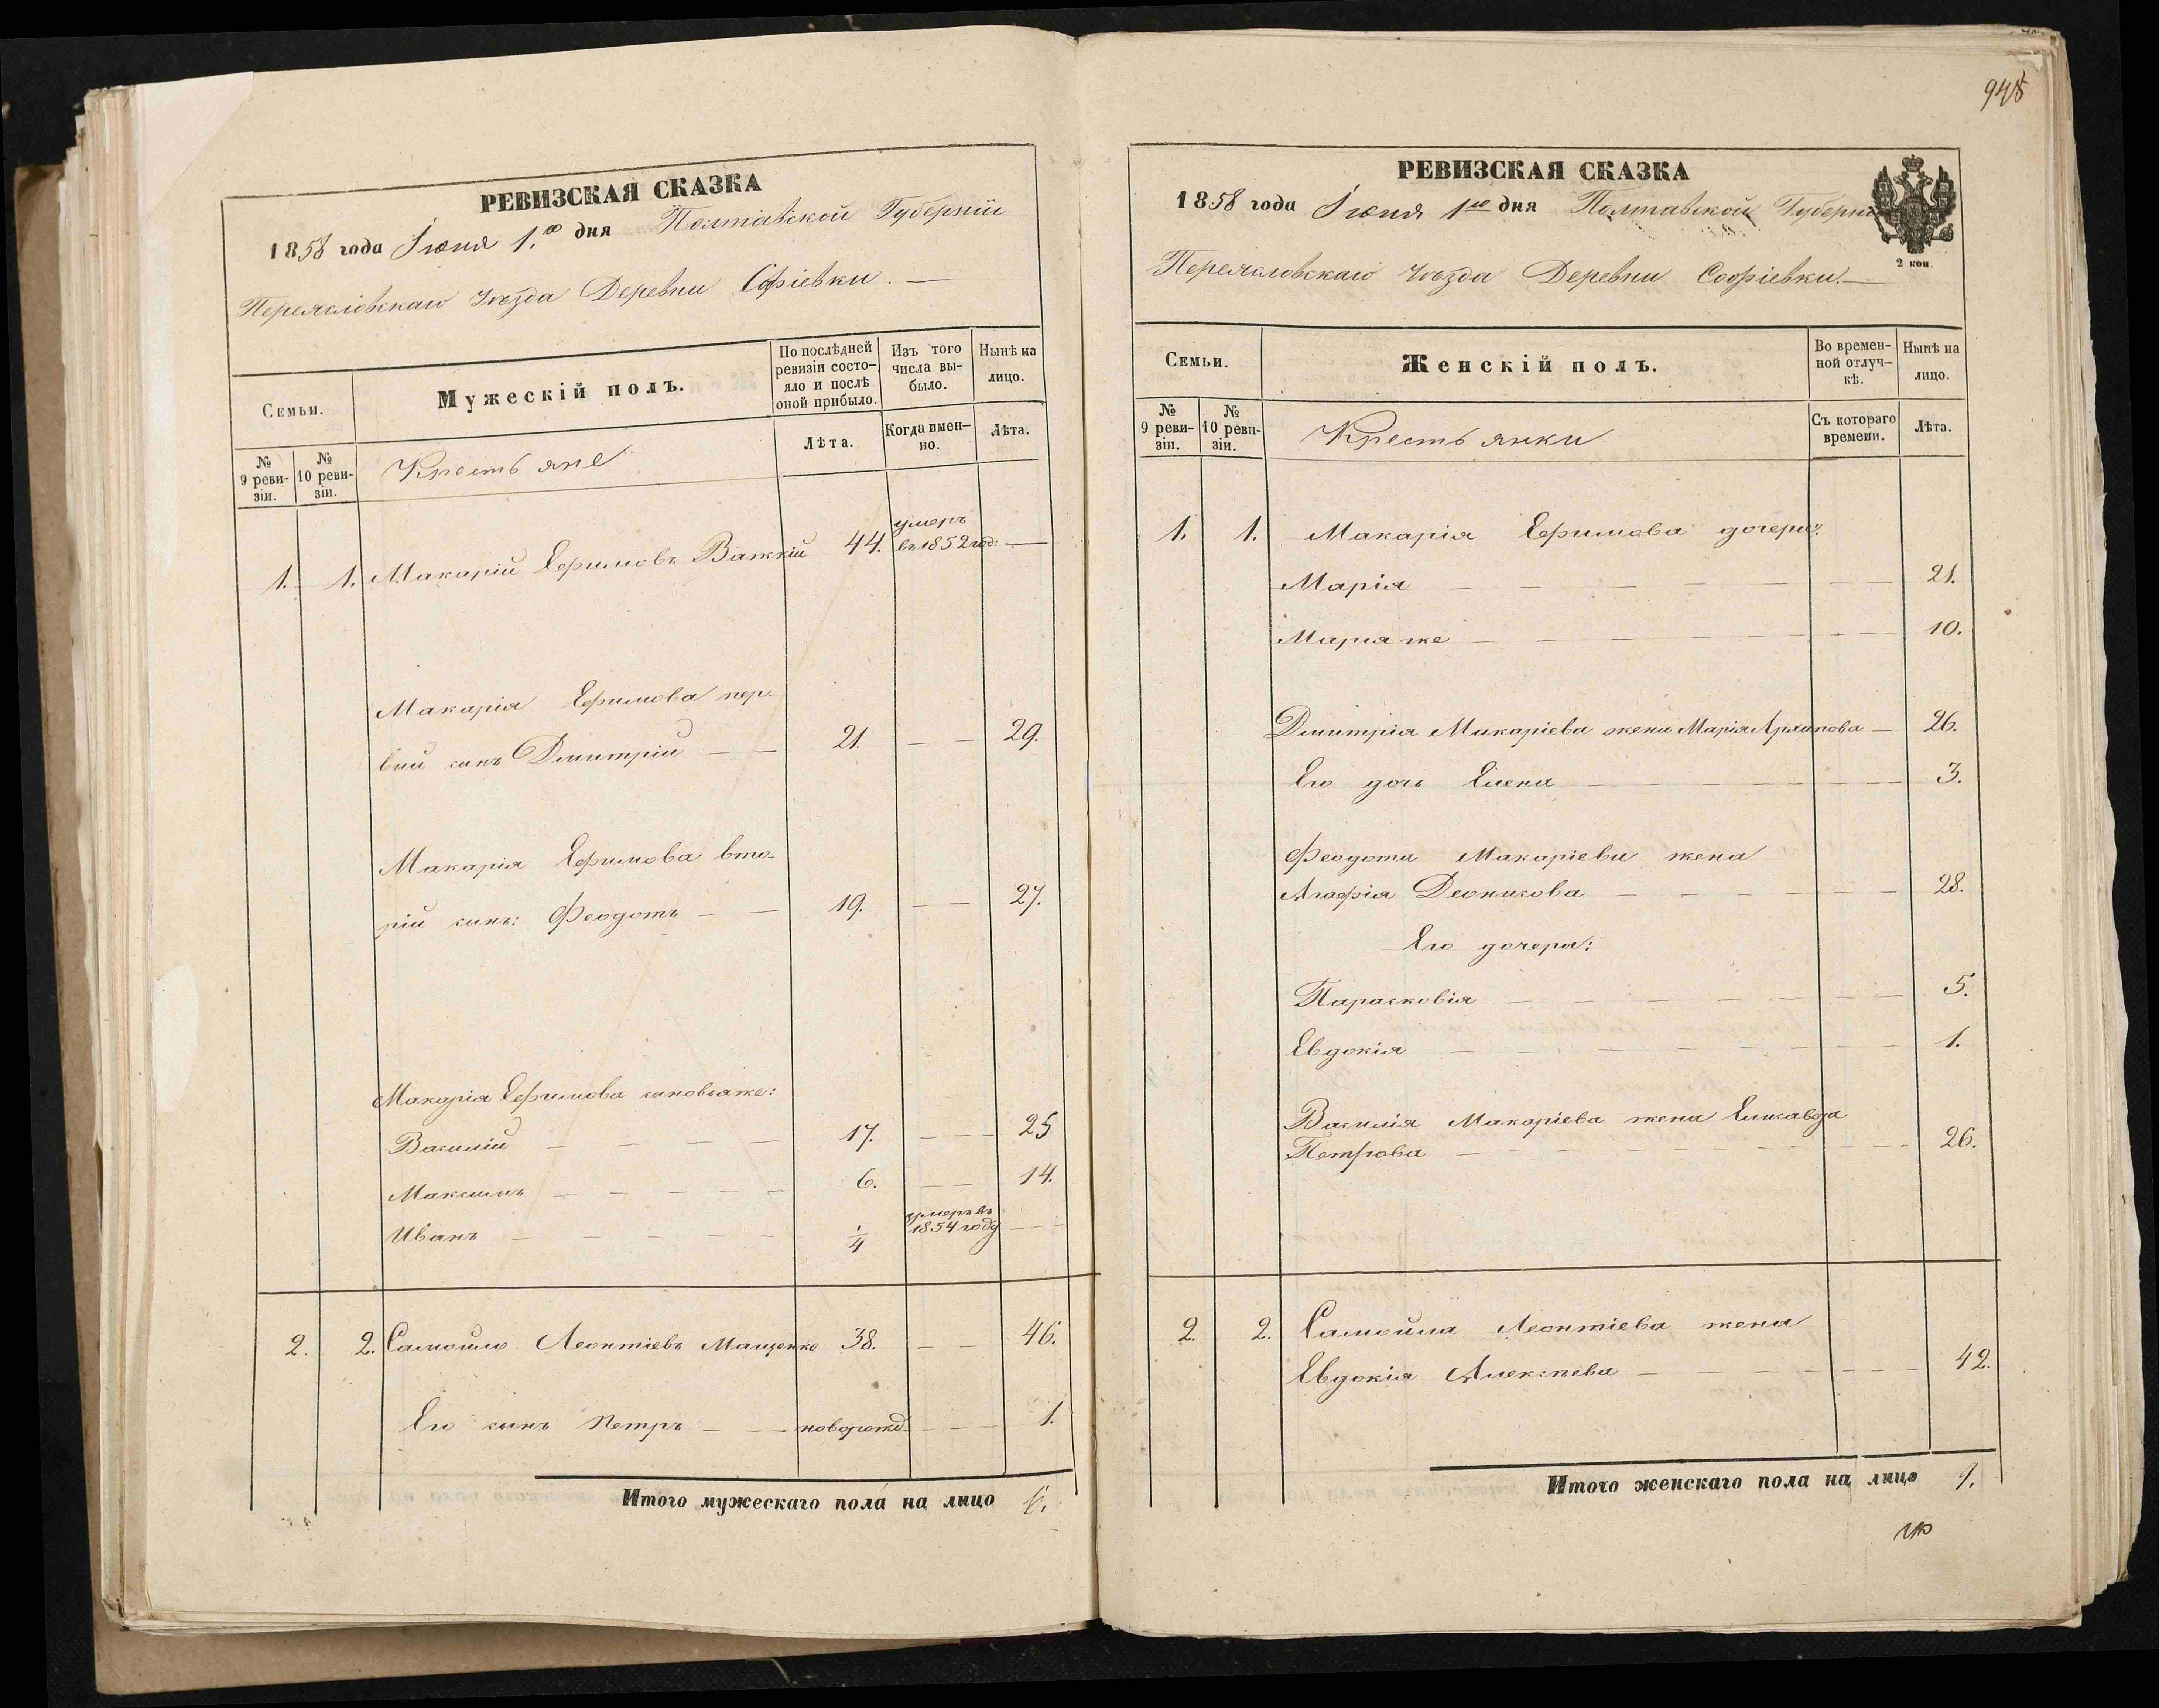 РЕВИЗСКАЯ СКАЗКА
1858 года Іюня 1.го дня Полтавской Губерніи
Переясловскаго Уѣзда Деревни Софіевки. —
Семьи.
Мужескій полъ.
По послѣдней ревизіи состояло и послѣ оной прибыло.
Изъ того числа выбыло.
Нынѣ на лицо.
№ 9 ревизіи.
№ 10 ревизіи.
Крестьяне
Лѣта.
Когда именно.
Лѣта.
1. 1. Макарій Ефимовъ Важкій 44. умеръ въ 1852 год: —
Макарія Ефимова пер-
вий сынъ Дмитрій — — 21. — — 29.
Макарія Ефимова вто-
рій сынъ: Феодотъ — — 19. — — 27.
Макарія Ефимова сыновьяже:
Василій — — — — 17. — — 25
Максимъ — — — — — 6. — — 14.
Иванъ — — — — — 1/4 умеръ въ 1854 году — —
2. 2. Самойло Леонтіевъ Мащенко 38. — — 46.
Его сынъ Петръ — — — новорожд. — — 1.
Итого мужескаго пола на лицо 6.
948
РЕВИЗСКАЯ СКАЗКА
1858 года Іюня 1го дня Полтавской Губерніи
2 коп.
Переясловскаго Уѣзда Деревни Софіевки. —
Семьи.
Женскій полъ.
Во временной отлучкѣ.
Нынѣ на лицо.
№ 9 ревизіи.
№ 10 ревизіи.
Крестьянки
Съ котораго времени.
Лѣта.
1. 1. Макарія Ефимова дочери:
Марія — — — — — — 21.
Марія же — — — — — — 10.
Дмитрія Макаріева жена Марія Архипова — 26.
Его дочь Елена — — — — — — 3.
Феодота Макаріева жена
Агафія Деонисова — — — — — 28.
Его дочери:
Парасковія — — — — — — 5.
Евдокія — — — — — — 1.
Василія Макаріева жена Елисавета
Петрова — — — — — — 26.
2. 2. Самойла Леонтіева жена
Евдокія Алексѣева — — — — — 42.
Итого женскаго пола на лицо 9.